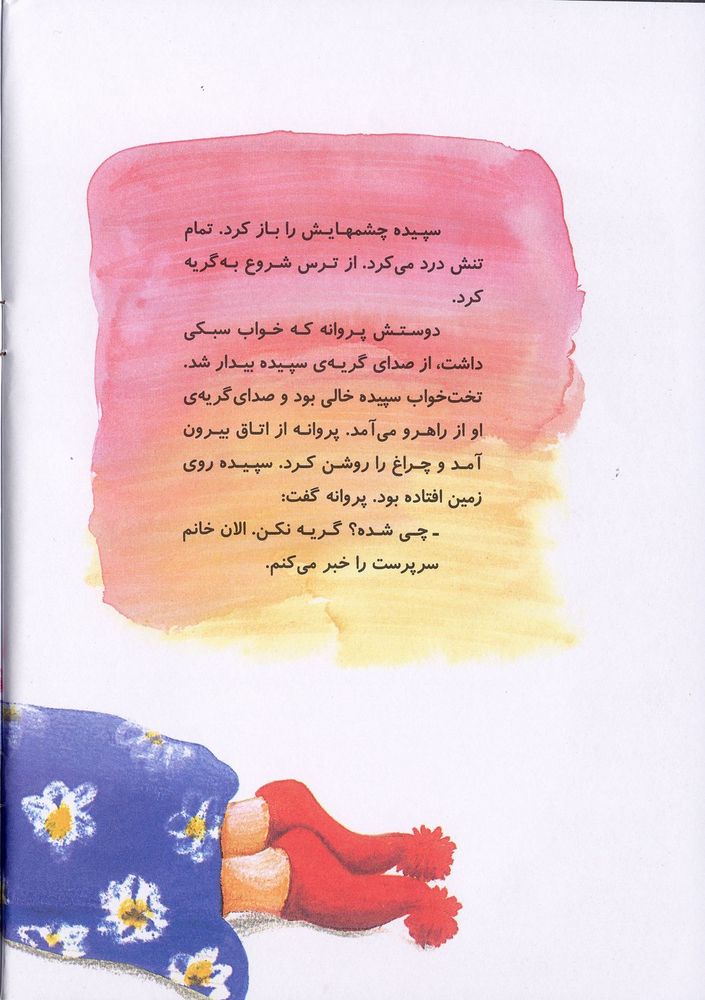 سپیده چشمهایش را باز کرد. تمام
تنش درد می‌کرد. از ترس شروع به‌گریه
کرد.
دوستش پروانه که خواب سبکی
داشت، از صدای گریه‌ی سپیده بیدار شد.
تخت‌خواب سپیده خالی بود و صدای‌گریه‌ی
او از راهرو می‌آمد. پروانه از اتاق بیرون
آمد و چراغ را روشن کرد. سپیده روی
زمین افتاده بود. پروانه گفت:
ـ چی شده؟ گریه نکن. الان خانم
سرپرست را خبر می‌کنم.